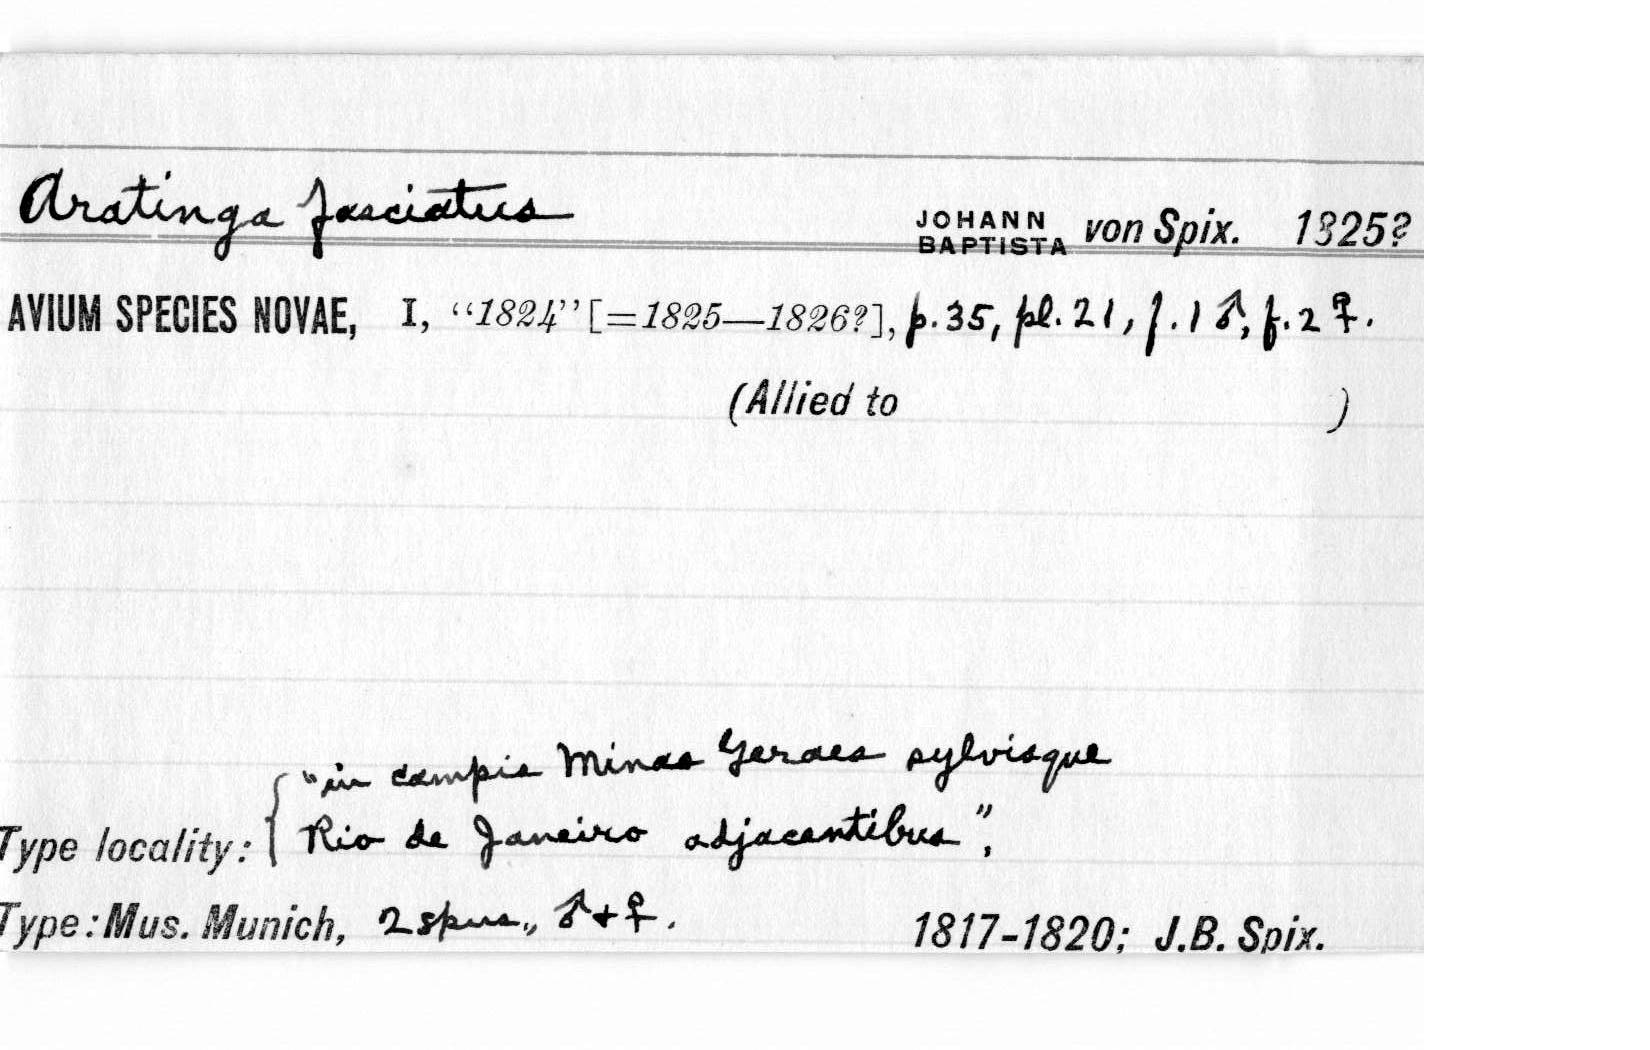 Aratinga fasciatus
JOHANN BAPTISTA von Spix. 1825?
AVIUM SPECIES NOVAE, I, “1824” [=1825—1826?], p. 35, pl. 21, f. 1 ♂, f. 2 ♀.
(Allied to )
"in campis Minas Geraes sylvisque
Type locality: { Rio de Janeiro adjacentibus",
Type: Mus. Munich, 2 spms., ♂ + ♀. 1817-1820; J.B. Spix.